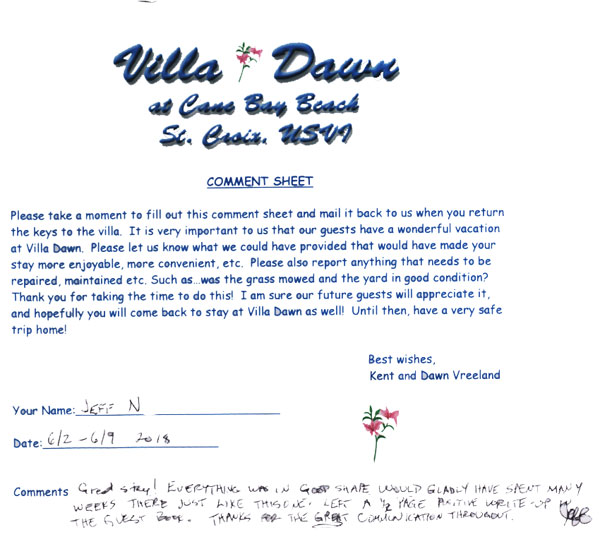 Villa Dawn
at Cane Bay Beach
St. Croix, USVI
COMMENT SHEET
Please take a moment to fill out this comment sheet and mail it back to us when you return
the keys to the villa. It is very important to us that our guests have a wonderful vacation
at Villa Dawn. Please let us know what we could have provided that would have made your
stay more enjoyable, more convenient, etc. Please also report anything that needs to be
repaired, maintained etc. Such as…was the grass mowed and the yard in good condition?
Thank you for taking the time to do this! I am sure our future guests will appreciate it,
and hopefully you will come back to stay at Villa Dawn as well! Until then, have a very safe
trip home!
Best wishes,
Kent and Dawn Vreeland
Your Name: JEFF N
Date: 6/2 - 6/9 2018
Comments Great stay! EVERYTHING WAS IN GOOD SHAPE WOULD GLADLY HAVE SPENT MANY
WEEKS THERE JUST LIKE THIS ONE. LEFT A 1/2 PAGE POSITIVE WRITE-UP IN
THE GUEST BOOK. THANKS FOR THE GREAT COMMUNICATION THROUGHOUT.